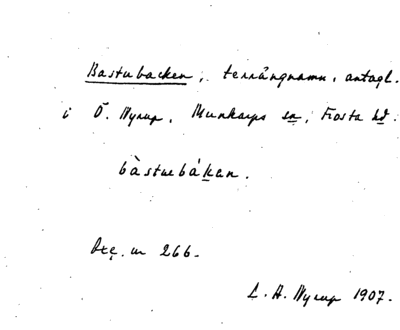 Bastubacken, terrängnamn, antagl.
i Ö. Nyrup, Munkarps sn, Frosta hd.
bàstuebákan.
Oxc. m 266.
L. A. Nyrup 1907.